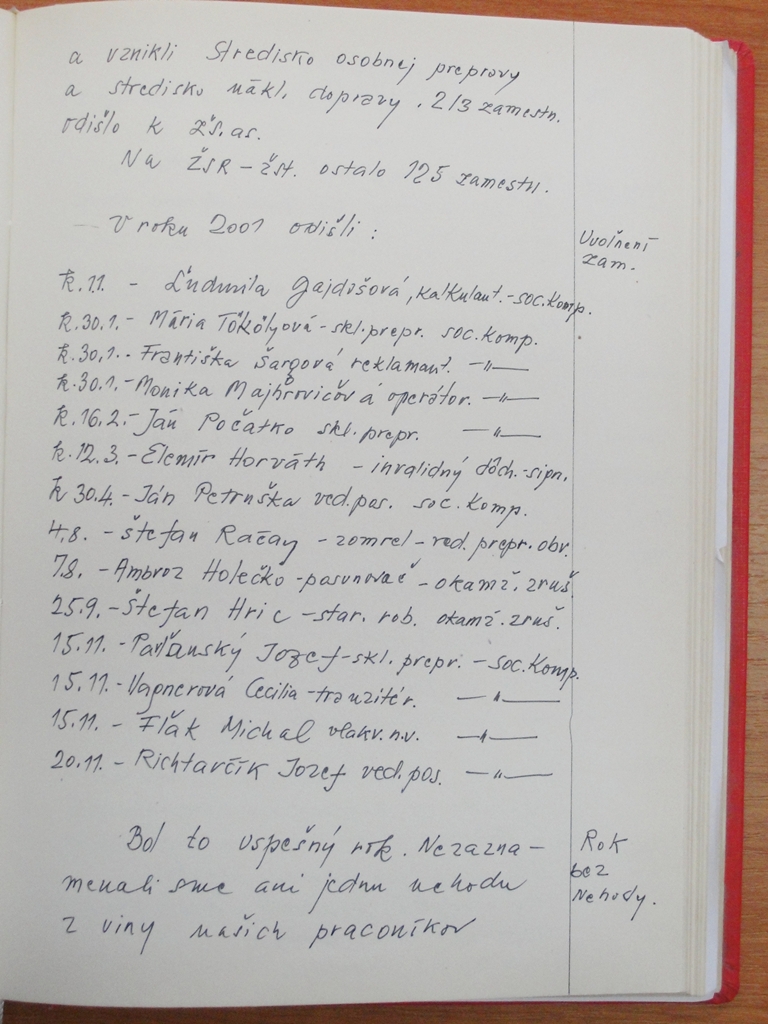 a vznikli Stredisko osobnej prepravy
a stredisko nákl. dopravy. 213 zamestn.
odišlo k ZS.as.
Na ŽSR – žst. ostalo 125 zamestn.
– V roku 2001 odišli:
Uvoľnení
zam.
k.1.1. – Ľudmila Gajdošová, kalkulant.-soc.komp.
k.30.1.– Mária Tököly­ová – skl.prepr. soc.komp.
k.30.1.. Františka Šargová reklamant. –"–
k.30.1.– Monika Majhrovičová operátor. –"–
k.16.2.– Ján Počatko skl.prepr. –"–
k.12.3.– Elemír Horváth – invalidný dôch.-sign.
k 30.4.– Ján Petruška ved.pos. soc.komp.
4.8. – Štefan Račay – zomrel – ved. prepr. obv.
7.8. – Ambroz Holečko – posunovač – okamž. zruš.
25.9.– Štefan Hric – star. rob. okamž. zruš.
15.11.– Pavľanský Jozef – skl. prepr. – soc.komp.
15.11.– Vagnerová Cecilia – tranzitér. –"–
15.11. – Flak Michal vlakv.n.v. –"–
20.11. – Richtarčík Jozef ved.pos. –"–
Bol to uspešný rok. Nezazna–
menali sme ani jednu nehodu
z viny našich pracovníkov
Rok
bez
Nehody.